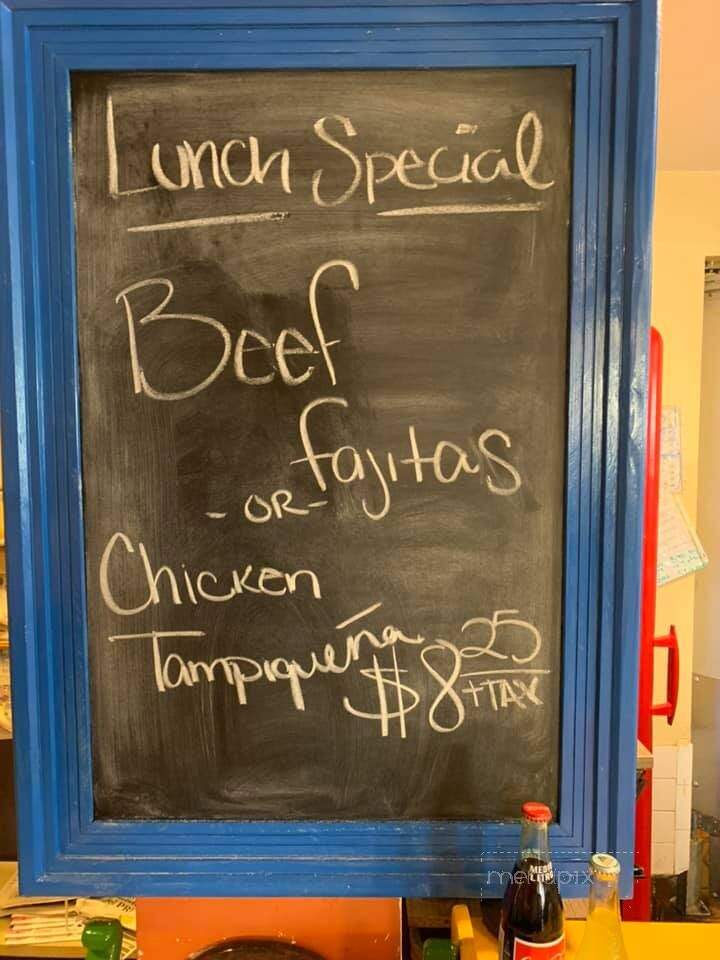 Lunch Special
Beef
fajitas
- OR -
Chicken
Tampiqueña
$8 25
+TAX
MEDIO
LITRO
menupix